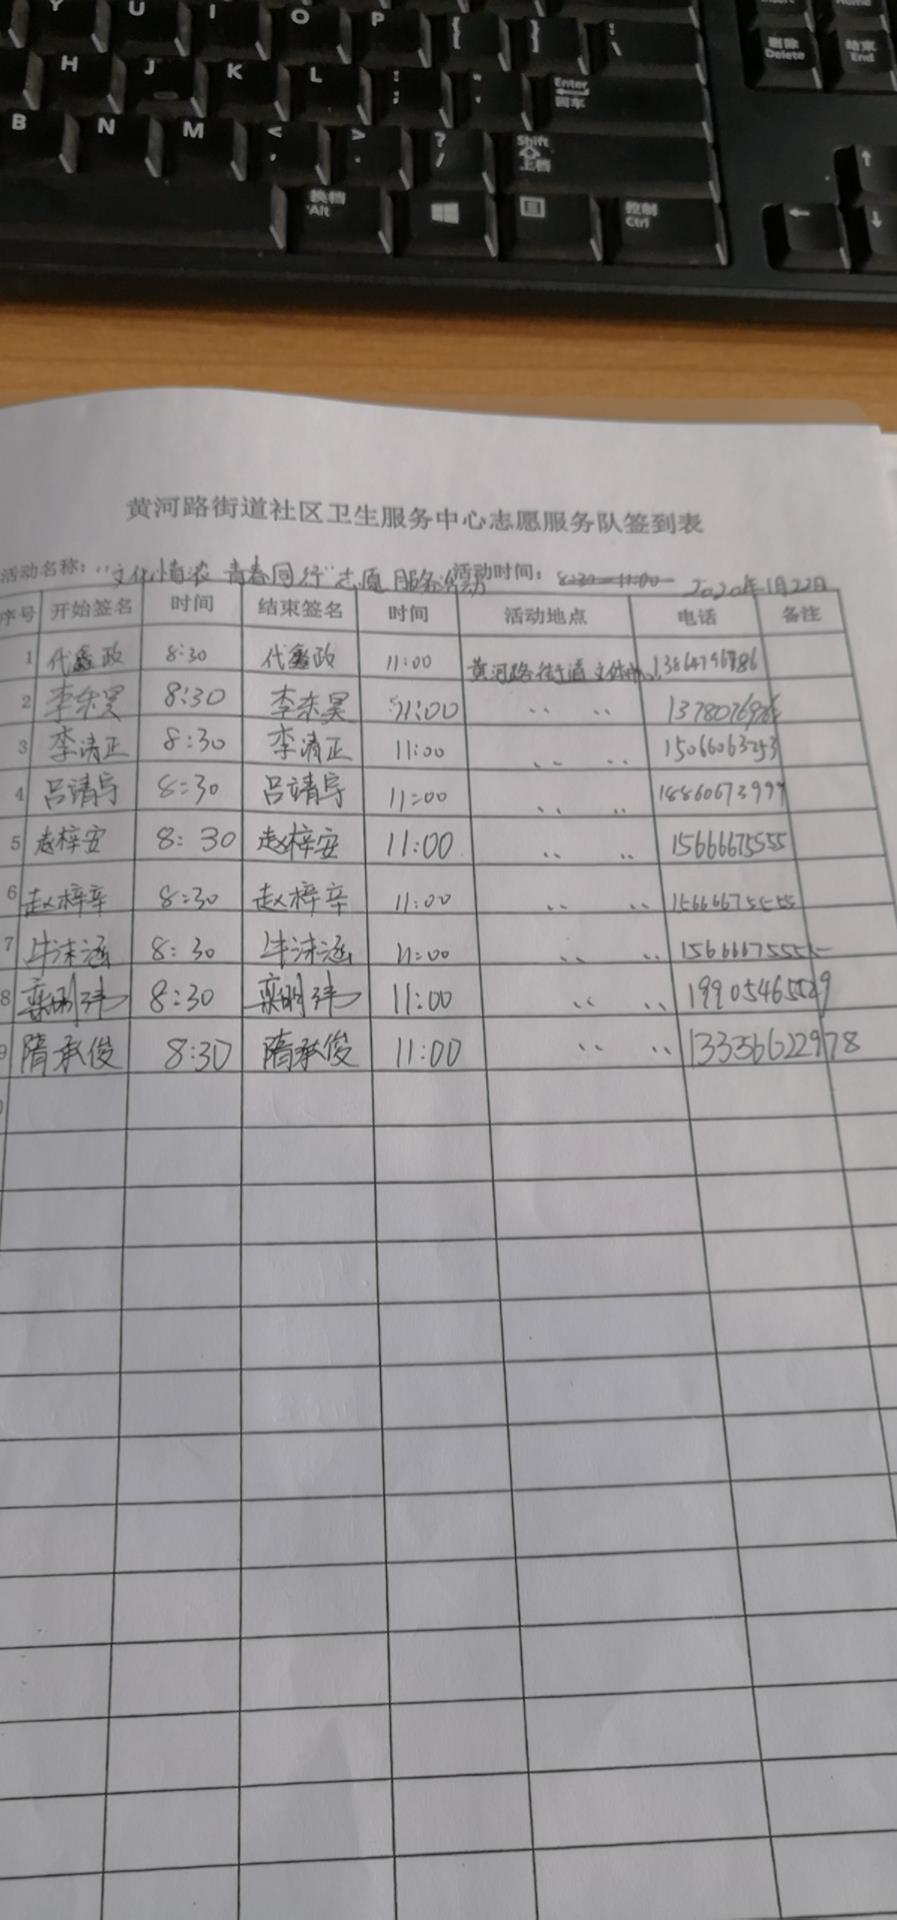 Y U I O P { [ } ] | \
H J K L : ; " ' Enter 回车
删除 Delete 结束 End
B N M < , > . ? / Shift 上档
换档 Alt 控制 Ctrl
黄河路街道社区卫生服务中心志愿服务队签到表
活动名称："文化情浓 青春同行"志愿服务活动 活动时间： 8:30-11:00 2020年1月22日
序号 开始签名 时间 结束签名 时间 活动地点 电话 备注
1 代鑫政 8:30 代鑫政 11:00 黄河路街道文体
2 李东昊 8:30 李东昊 11:00 〃 〃
3 李清正 8:30 李清正 11:00 〃 〃 15066063253
4 吕靖宇 8:30 吕靖宇 11:00 〃 〃 18860673999
5 赵梓安 8:30 赵梓安 11:00 〃 〃 15666675555
6 赵梓辛 8:30 赵梓辛 11:00 〃 〃 15666675555
7 牛沫涵 8:30 牛沫涵 11:00 〃 〃 15666675555
8 栾明玮 8:30 栾明玮 11:00 〃 〃 19905465529
9 隋承俊 8:30 隋承俊 11:00 〃 〃 13336622978